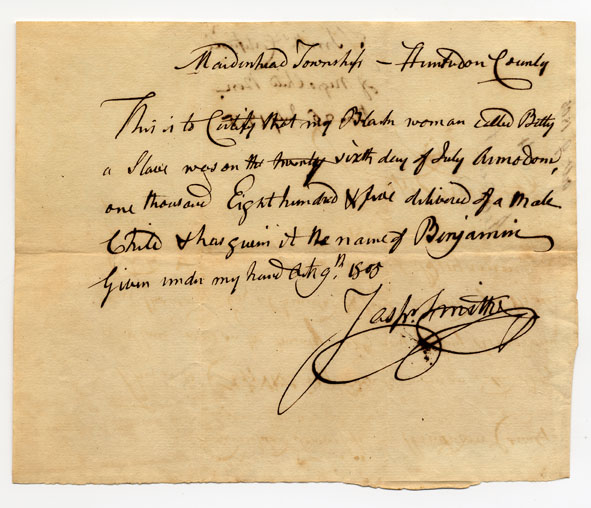 Maidenhead Township – Hunterdon County
This is to Certify that my Black woman called Betty
a Slave was on the twenty sixth day of July Annodom,
one thousand Eight hundred & five delivered of a Male
Child & has given it the name of Benjamin
Given under my hand 9th. 1805
Jaspr. Smith